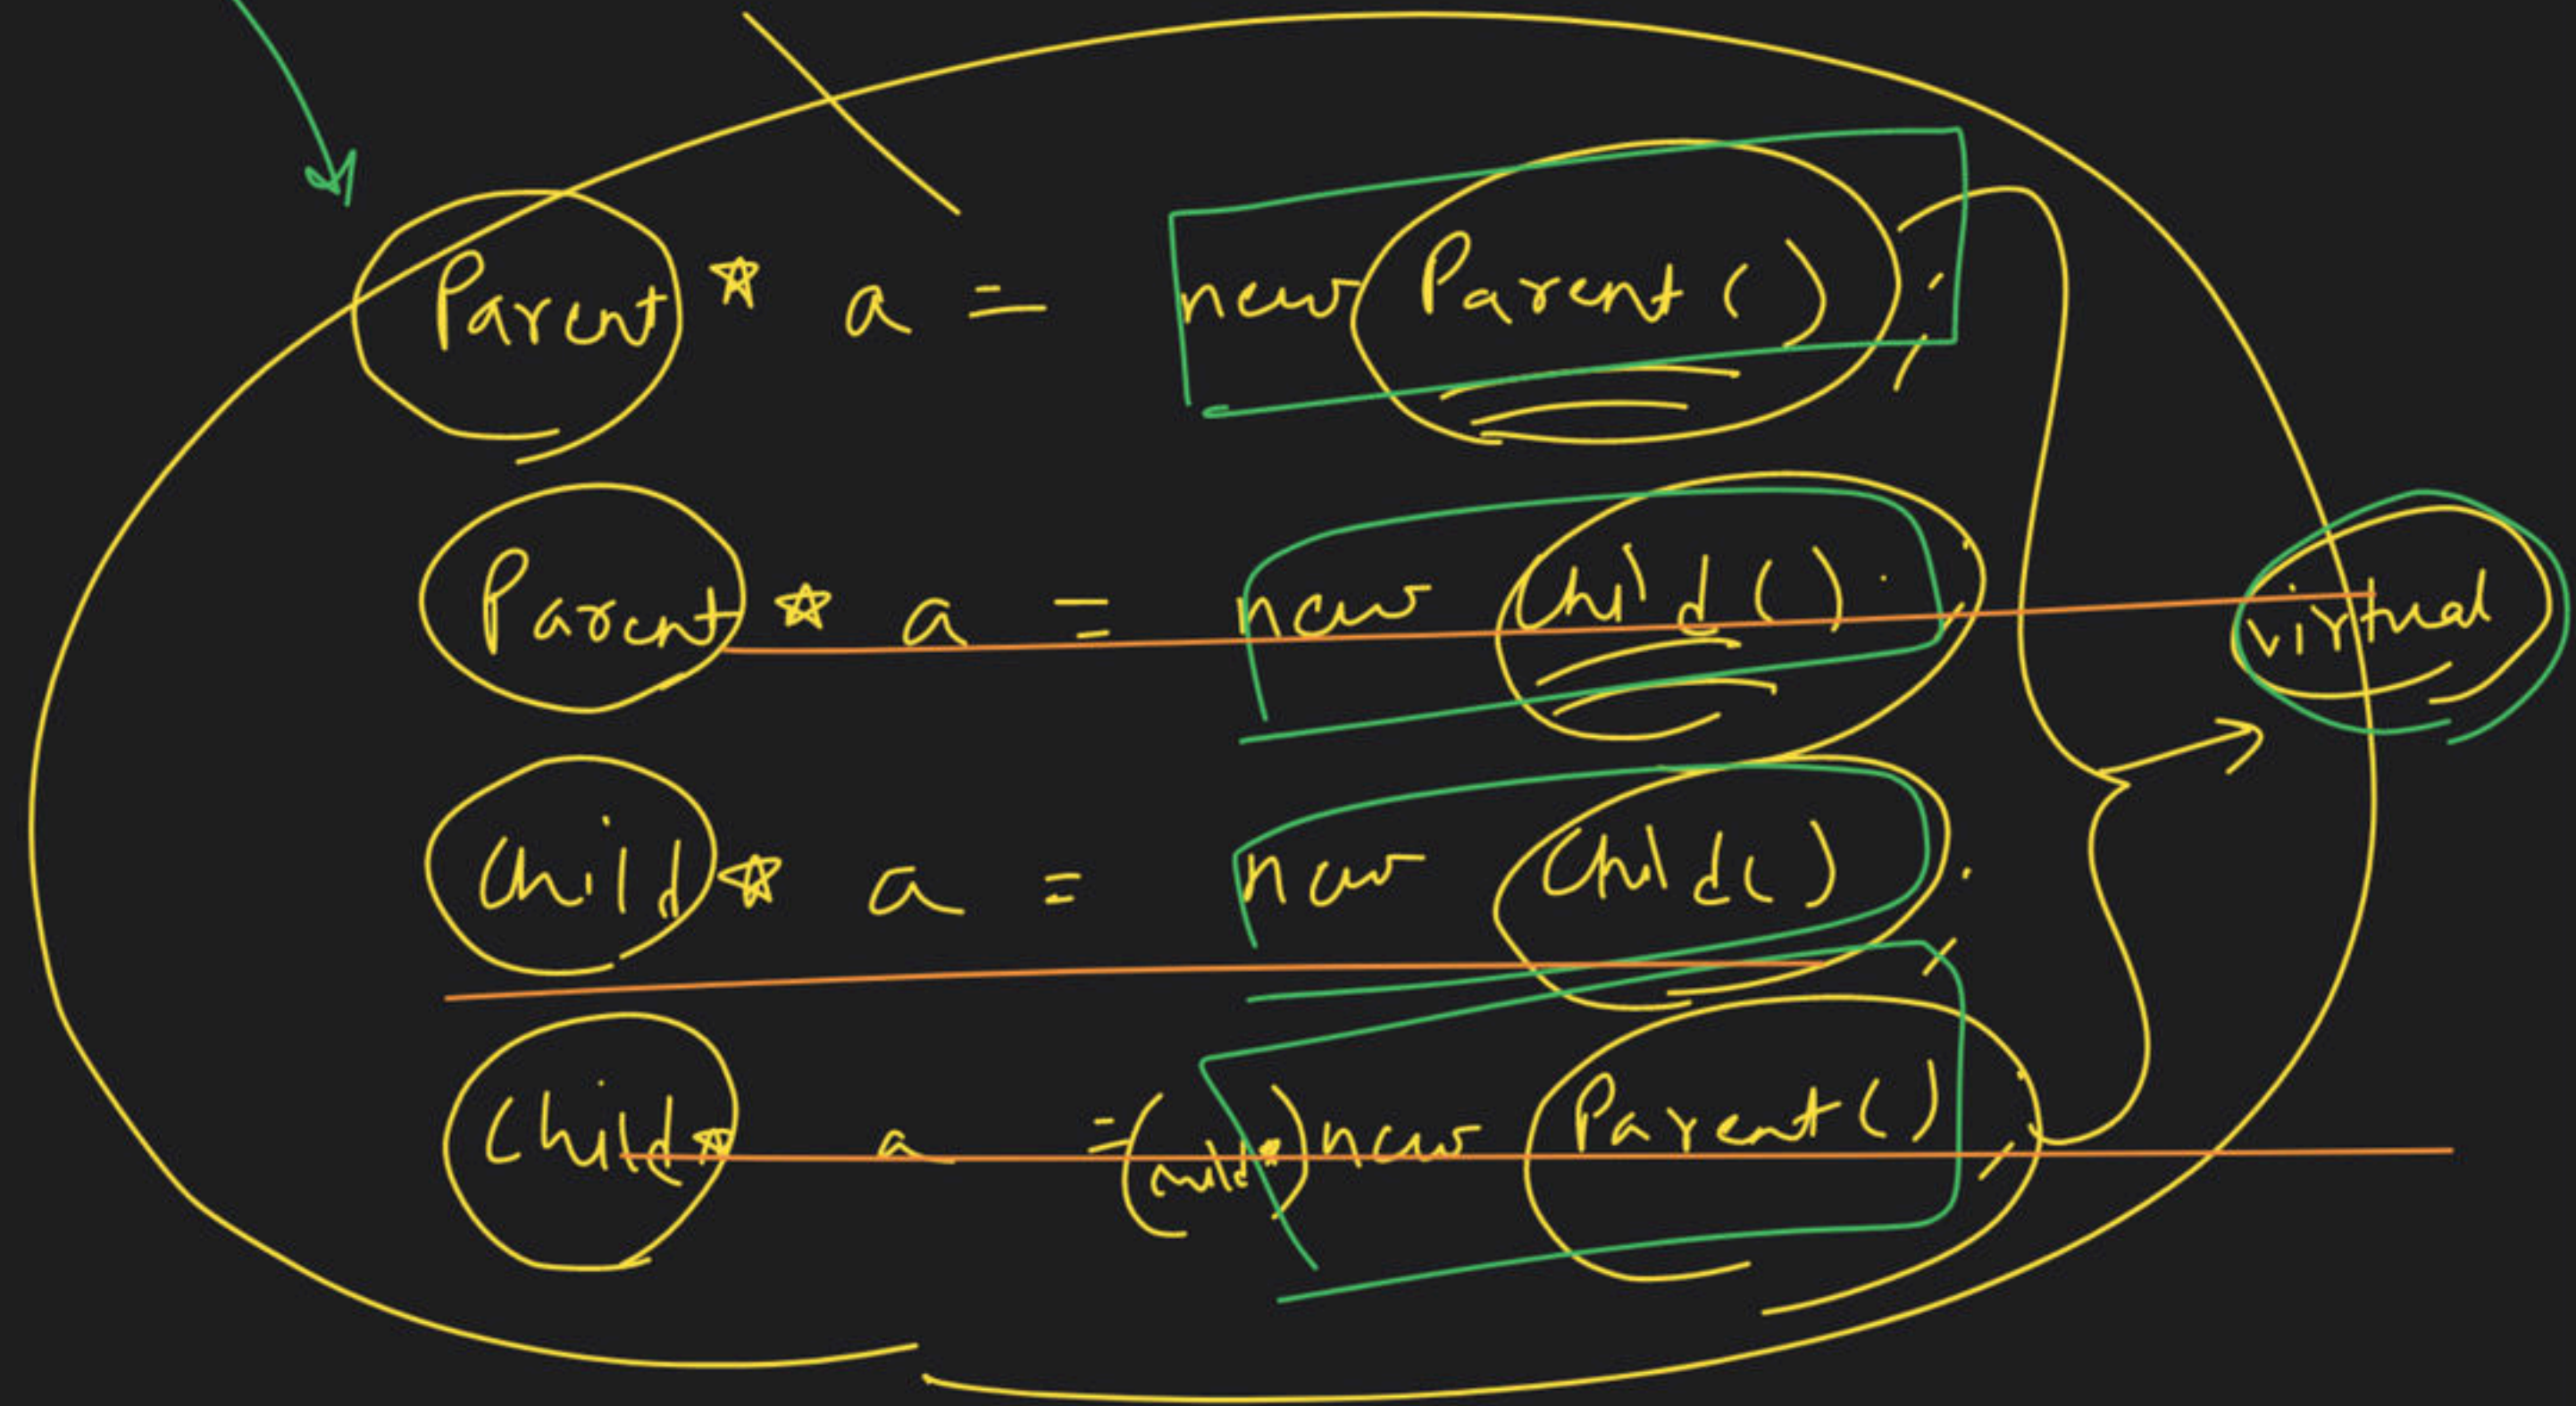 Parent * a = new Parent();
Parent * a = new Child();
Child * a = new Child();
Child * a = (child*) new Parent();
virtual